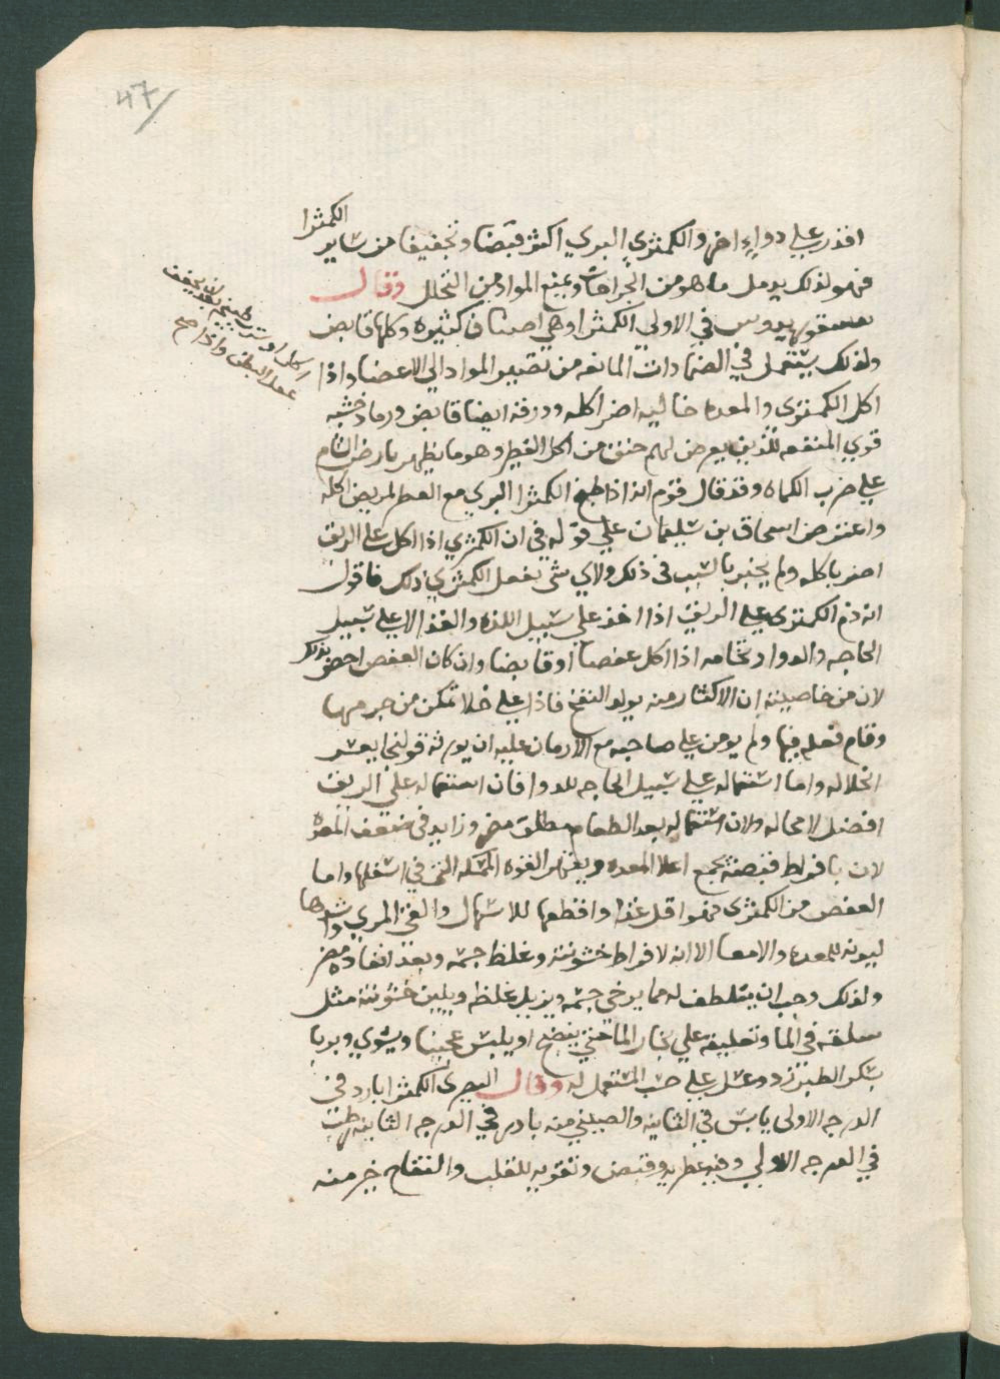 47
اقدر علي دواء اخر والكمثري البري اكثر قبضا وتجفيفا من ساير الكمثرا
فهو لذلك يدمل ما هو من الجراحات ويمنع المواد من التحلل وقال
ديسقوريدوس في الاولي الكمثرا وهي اصناف كثيره وكلها قابض
ولذلك يستعمل في الضمادات المانعه من تصير المواد الي الاعضا واذا
اكل الكمثري والمعده خاليه اضر اكله وورقه ايضا قابض ورماد خشبه
قوي المنفعه للذين يعرض لهم خنق من اكل الفطر وهو ما يظهر بارض الشام
علي ضرب الكماه وقد قال قوم انه اذا طبخ الكمثرا البري مع الفطر لم يضر اكله
واعترض اسحاق بن سليمان علي قوله في ان الكمثري اذا اكل علي الريق
اضر باكله ولم يخبر بالسبب في ذلك ولاي شي يفعل الكمثري ذلك فاقول
انه ذم الكمثري علي الريق اذا اخذ علي سبيل اللذه والغذا لا علي سبيل
الحاجه والدوا وبخاصه اذا اكل عفصا او قابضا وان كان العفص اخص بذلك
لان من خاصيته ان الاكثار منه يولد النفخ فاذا علي خلا تمكن من جرمها
وقام فعله فيها ولم يومن علي صاحبه مع الادمان عليه ان يورثه قولنجا يعسر
انحلاله واما استعماله علي سبيل الحاجه للدوا فان استعماله علي الريق
افضل لا محاله ولان استعماله بعد الطعام مطلق مضر وزايد في ضعف المعده
لان بافراط قبضه يجمع اعلا المعده ويقهر القوه الممسكه التي في اسفلها واما
العفص من الكمثري فهو اقل غذا واقطعها للاسهال والقي المري واشدها
ليونه للمعده والامعا الا انه لافراط خشونته وغلظ جسمه وبعد انقياده مضر
ولذلك وجب ان يتلطف له مما يرخي جسمه ويزيل غلظه ويلين خشونته مثل
سلقه في الما وتعليقه علي بخار الما حتي ينضج او يلبس عجينا ويشوي ويربا
بسكر الطبرزد وعسل علي حسب المستعمل له وقال البصري الكمثرا بارد في
الدرجه الاولي يابس في الثانيه والصيني منه بارد في الدرجه الثانيه رطب
في الدرجه الاولي وفيه عطريه وقبض وتقويه للقلب والتفاح خير منه
اكل او شرب طبيخه بعد ان يجفف
عقل البطن واذا صح